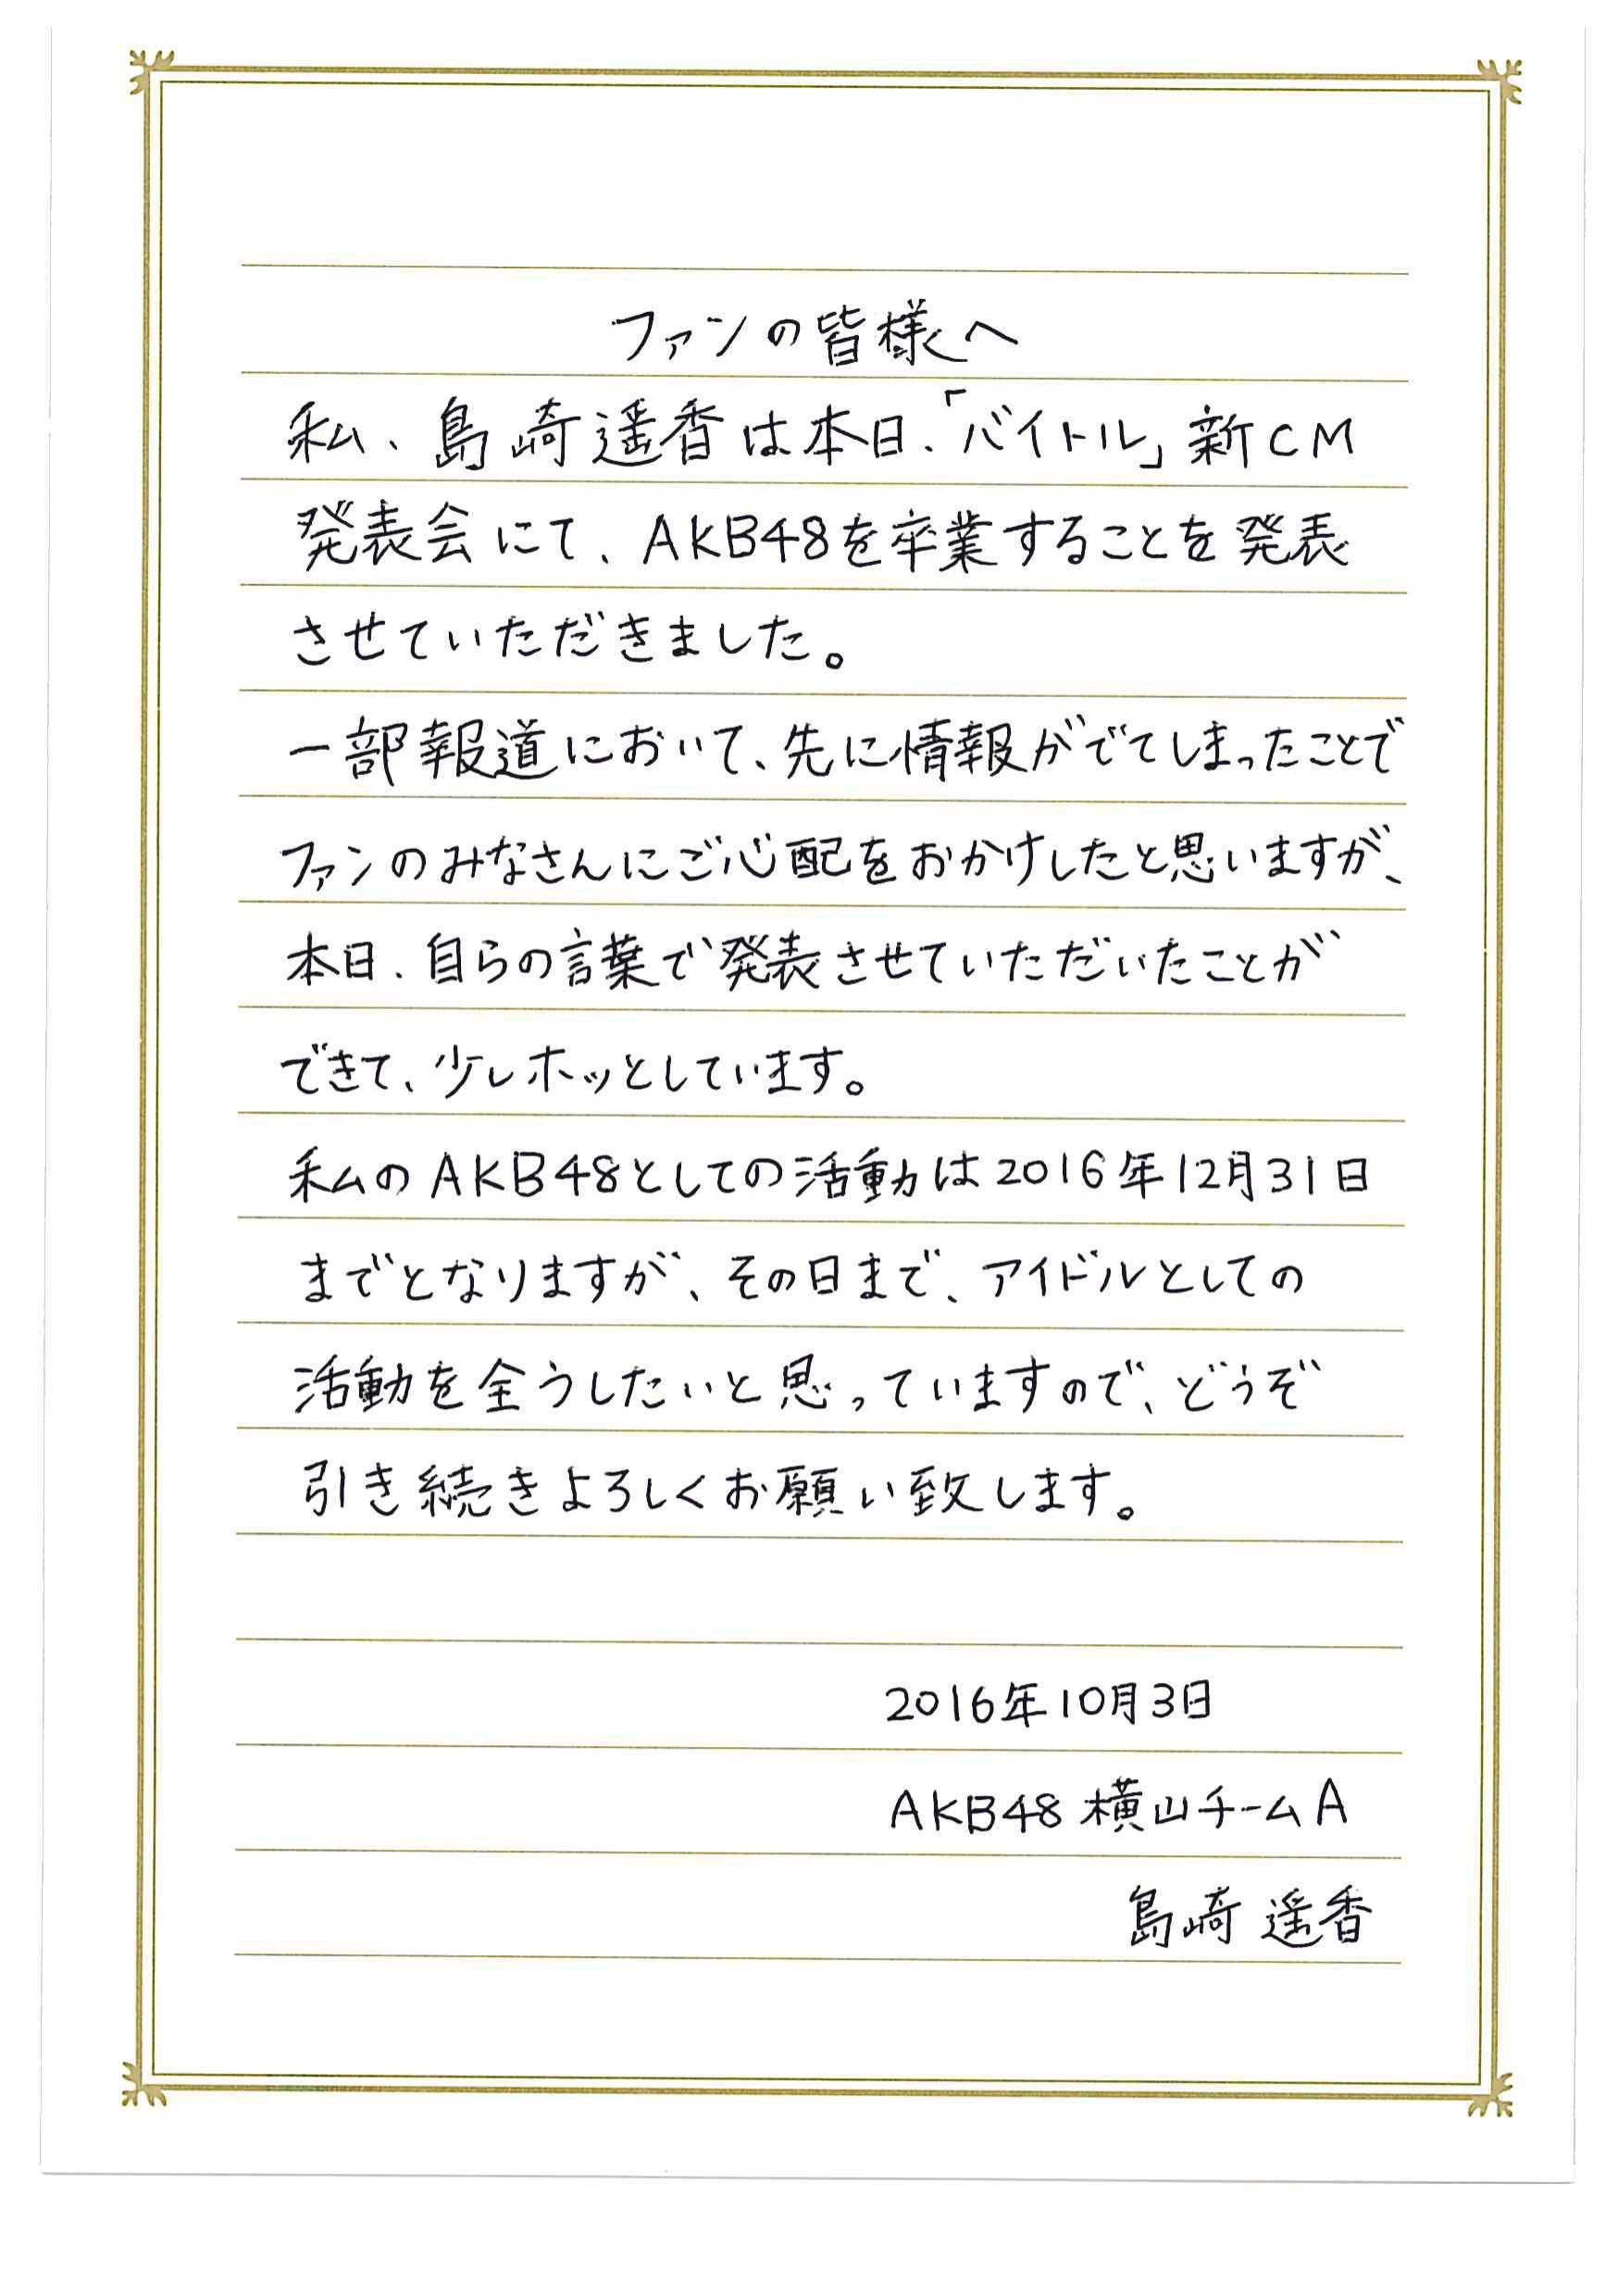 ファンの皆様へ
私、島崎遥香は本日、「バイトル」新CM
発表会にて、AKB48を卒業することを発表
させていただきました。
一部報道において、先に情報がでてしまったことで
ファンのみなさんにご心配をおかけしたと思いますが、
本日、自らの言葉で発表させていただいたことが
できて、少しホッとしています。
私のAKB48としての活動は2016年12月31日
までとなりますが、その日まで、アイドルとしての
活動を全うしたいと思っていますので、どうぞ
引き続きよろしくお願い致します。
2016年10月3日
AKB48 横山チームA
島崎 遥香